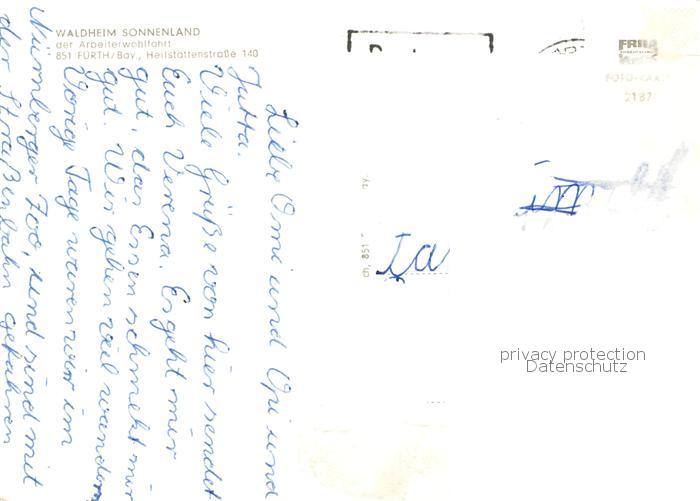 WALDHEIM SONNENLAND
der Arbeiterwohlfahrt
851 FÜRTH/Bay., Heilstättenstraße 140
Liebe Omi und Opi und
Jutta.
Viele Grüße von hier sendet
Euch Verena. Es geht mir
gut, das Essen schmekt mir
gut. Wir gehen viel wandern
Vorige Tage waren wir im
Nürnberger Zoo, und sind mit
der Straßenbahn gefahren
FOTO-KAR
2187
ch, 851
privacy protection
Datenschutz